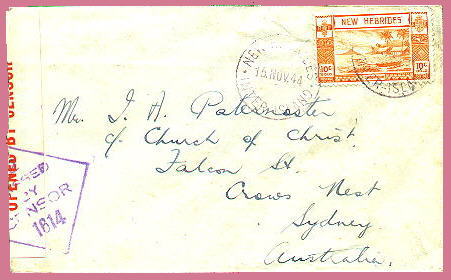 OPENED BY CENSOR
NEW HEBRIDES
15 NOV. 44
NEW HEBRIDES
10c 10c
Mr. J. A. Paternoster
c/o Church of Christ
Falcon St.
Crows Nest
Sydney.
Australia.
PASSED
BY
CENSOR
1814